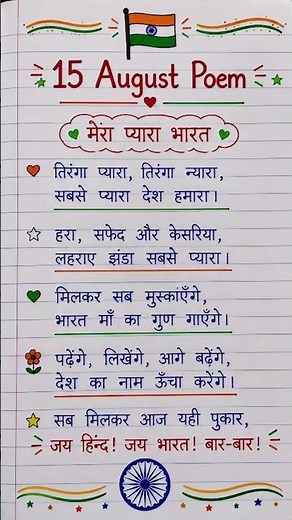 15 August Poem
मेरा प्यारा भारत
तिरंगा प्यारा, तिरंगा न्यारा,
सबसे प्यारा देश हमारा।
हरा, सफेद और केसरिया,
लहराए झंडा सबसे प्यारा।
मिलकर सब मुस्काएँगे,
भारत माँ का गुण गाएँगे।
पढ़ेंगे, लिखेंगे, आगे बढ़ेंगे,
देश का नाम ऊँचा करेंगे।
सब मिलकर आज यही पुकार,
जय हिन्द! जय भारत! बार-बार!